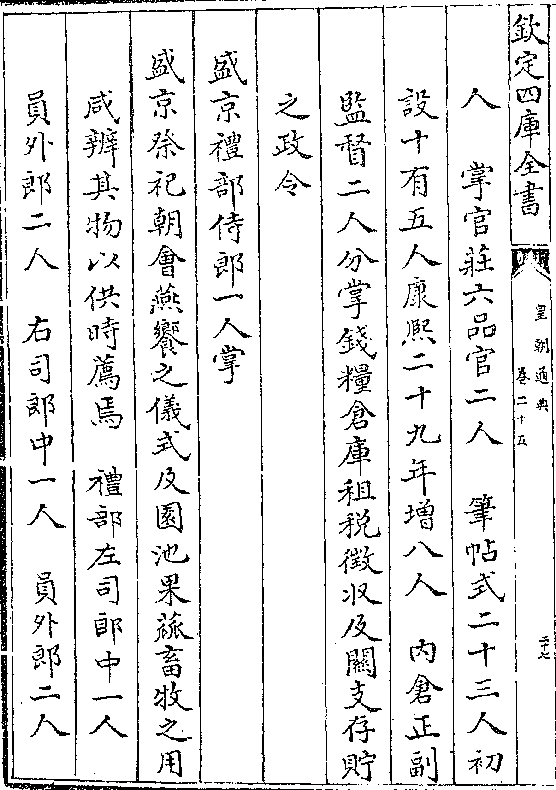 欽定四庫全書
皇朝通典
卷二十五
二十七
人　掌官莊六品官二人　筆帖式二十三人初
設十有五人康熙二十九年增八人　內倉正副
監督二人分掌錢糧倉庫租税徵收及關支存貯
之政令
盛京禮部侍郎一人掌
盛京祭祀朝會燕饗之儀式及園池果蓏畜牧之用
咸辨其物以供時薦焉　禮部左司郎中一人
員外郎二人　右司郎中一人　員外郎二人